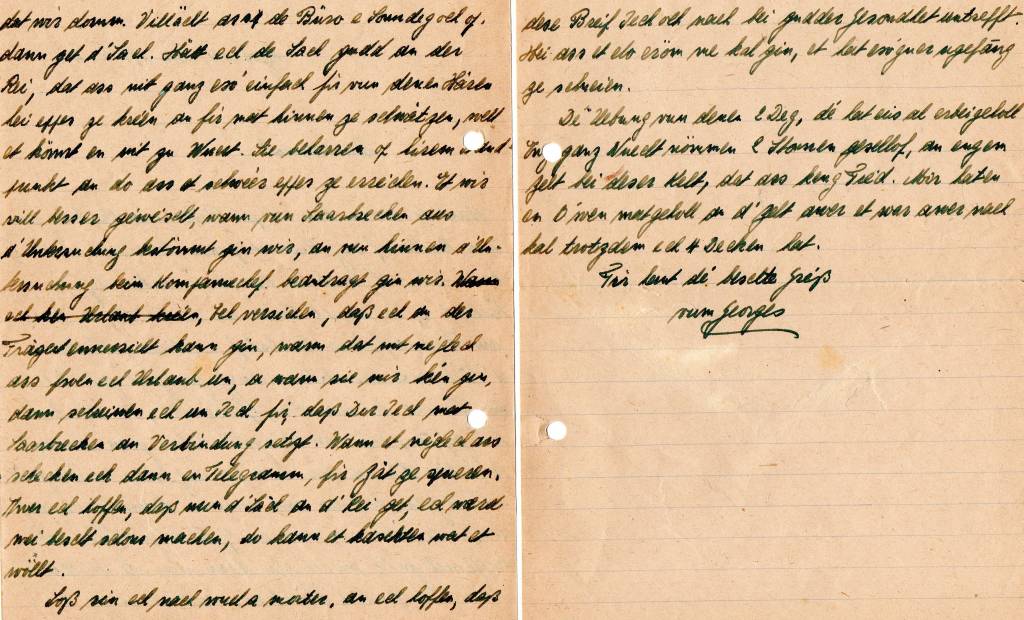 dat wis dorum. Villäelt ass de Büro e Sonndegoel of,
dann get d'Sach. Hätt ech de Sach gudd an der
Rei, dat ass nit ganz esó einfach fir vun denen Hären
hei eppes ze kréen an fir mat hinnen ze schwätzen, well
et könnt en nit zu Wuert. Sie beharren of hirem
punkt an do ass et schwéer eppes ze erréechen. Et wir
vill besser gewiéselt, wann vun Saarbrecken aus
d'Untersuchung bestömmt gin wir, an vun hinnen d'Un-
tersuchung beim Kompaniechef beantragt gin wir. Wann
ech ken Urlaub kréien, Ech versichen, daß ech an der
Trägert ennersicht kann gin, wann dat nit méglech
ass froen ech Urlaub un, a wann sie mir kén gin,
dann schreiwen ech un Iech fir, daß Dir Iech mat
Saarbrecken an Verbindung setzt. Wann et méglech ass
schecken ech dann en Telegramm, fir Zät ze spueren.
Awer ech hoffen, daß nun d'Säch an d'Rei get, ech wärd
mei bescht schons machen, do kann et kaschten wat et
wöllt.
Soß sin ech nach wuel a monter, an ech hoffen, daß
dese Breif Iech och nach bei gudder Gesondhet untrefft.
Hei ass et elo erëm me kal gin, et hat esóguer ugefäng
ze schneien.
Dé Uebung vun denen 2 Deg, dé hat eis al erbeigeholl
ganz Nuecht nömmen 2 Stonnen geschlof, an engem
Zelt bei deser Kelt, dat ass keng Freid. Mir haten
en O'wen matgeholl an d'Zelt awer et war awer nach
kal trotzdem ech 4 Decken hat.
Fir haut dé beschte Gréß
vum Georges